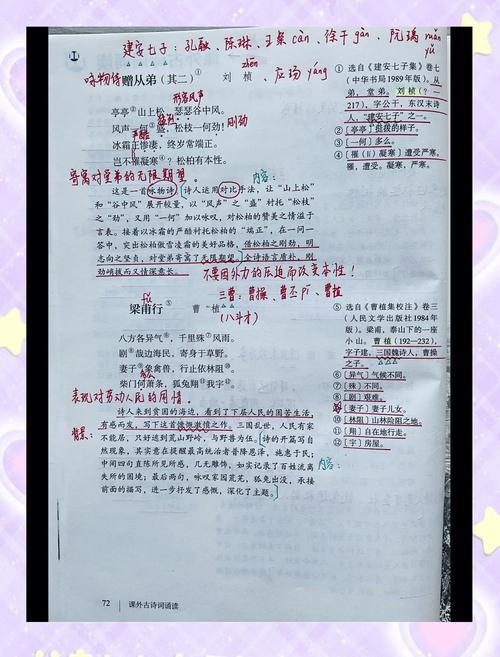 建安七子：孔融、陈琳、王粲càn、徐干gàn、阮瑀
yǔ
刘桢、应玚yáng
zhēn
咏物诗
赠从弟（其二）①
刘 桢
形容风声
亭亭②山上松，瑟瑟谷中风。
风声一何③盛，松枝一何劲！
刚劲
冰霜正惨凄，终岁常端正。
岂不罹凝寒④？松柏有本性。
寄寓对堂弟的无限期望。
内容：
这是一首咏物诗。诗人运用对比手法，让“山上松”
和“谷中风”展开较量，以“风声”之“盛”衬托“松枝”
之“劲”，又用“一何”加以咏叹，对松柏的赞美之情溢于
言表。接着以冰霜的严酷衬托松柏的“端正”，在一问一
答中，突出松柏傲雪凌霜的美好品格，借松柏之刚劲，明
志向之坚贞，对堂弟寄寓了无限期望。全诗语言质朴，刚
劲峭拔而又情深意长。
不要因外力的压迫而改变本性！
三曹：曹操、曹丕pī、曹植
fǔ
梁甫行⑤
曹 植
（八斗才）
八方各异气⑥，千里殊⑦风雨。
剧⑧哉边海民，寄身于草野。
妻子⑨象禽兽，行止依林阻⑩。
柴门何萧条，狐兔翔⑪我宇⑫。
表现对劳动人民的同情。
背景：
诗人来到贫困的海边，看到了下层人民的困苦生活，
有感而发，写下这首慷慨激愤之作。三国乱世，人民有家
不能居，只好逃到荒山野岭，与野兽为伍。诗的开篇写自
然现象，其实意在提醒最高统治者普降恩泽，施惠于民；
中间四句直陈所见所感，几无雕饰，如实记录了百姓流离
失所的困境；最后两句，咏叹家园荒芜，狐兔出没，承接
前面的描写，进一步抒发了感慨，深化了主题。
内容：
① 选自《建安七子集》卷七
（中华书局1989年版）。从
弟，堂弟。刘桢（？—
217），字公干，东汉末诗
人，“建安七子”之一。
②〔亭亭〕挺拔的样子。
③〔一何〕多么。
④〔罹（lí）凝寒〕遭受严
寒。罹，遭受。凝寒，严寒。
⑤ 选自《曹植集校注》卷三
（人民文学出版社1984年
版）。梁甫，泰山下的一座
小山。曹植（192—232），
字子建，三国魏诗人，曹操
之子。
⑥〔异气〕气候不同。
⑦〔殊〕不同。
⑧〔剧〕艰难。
⑨〔妻子〕妻子儿女。
⑩〔林阻〕山林险阻之地。
⑪〔翔〕自在地行走。
⑫〔宇〕房屋。
72 课外古诗词诵读